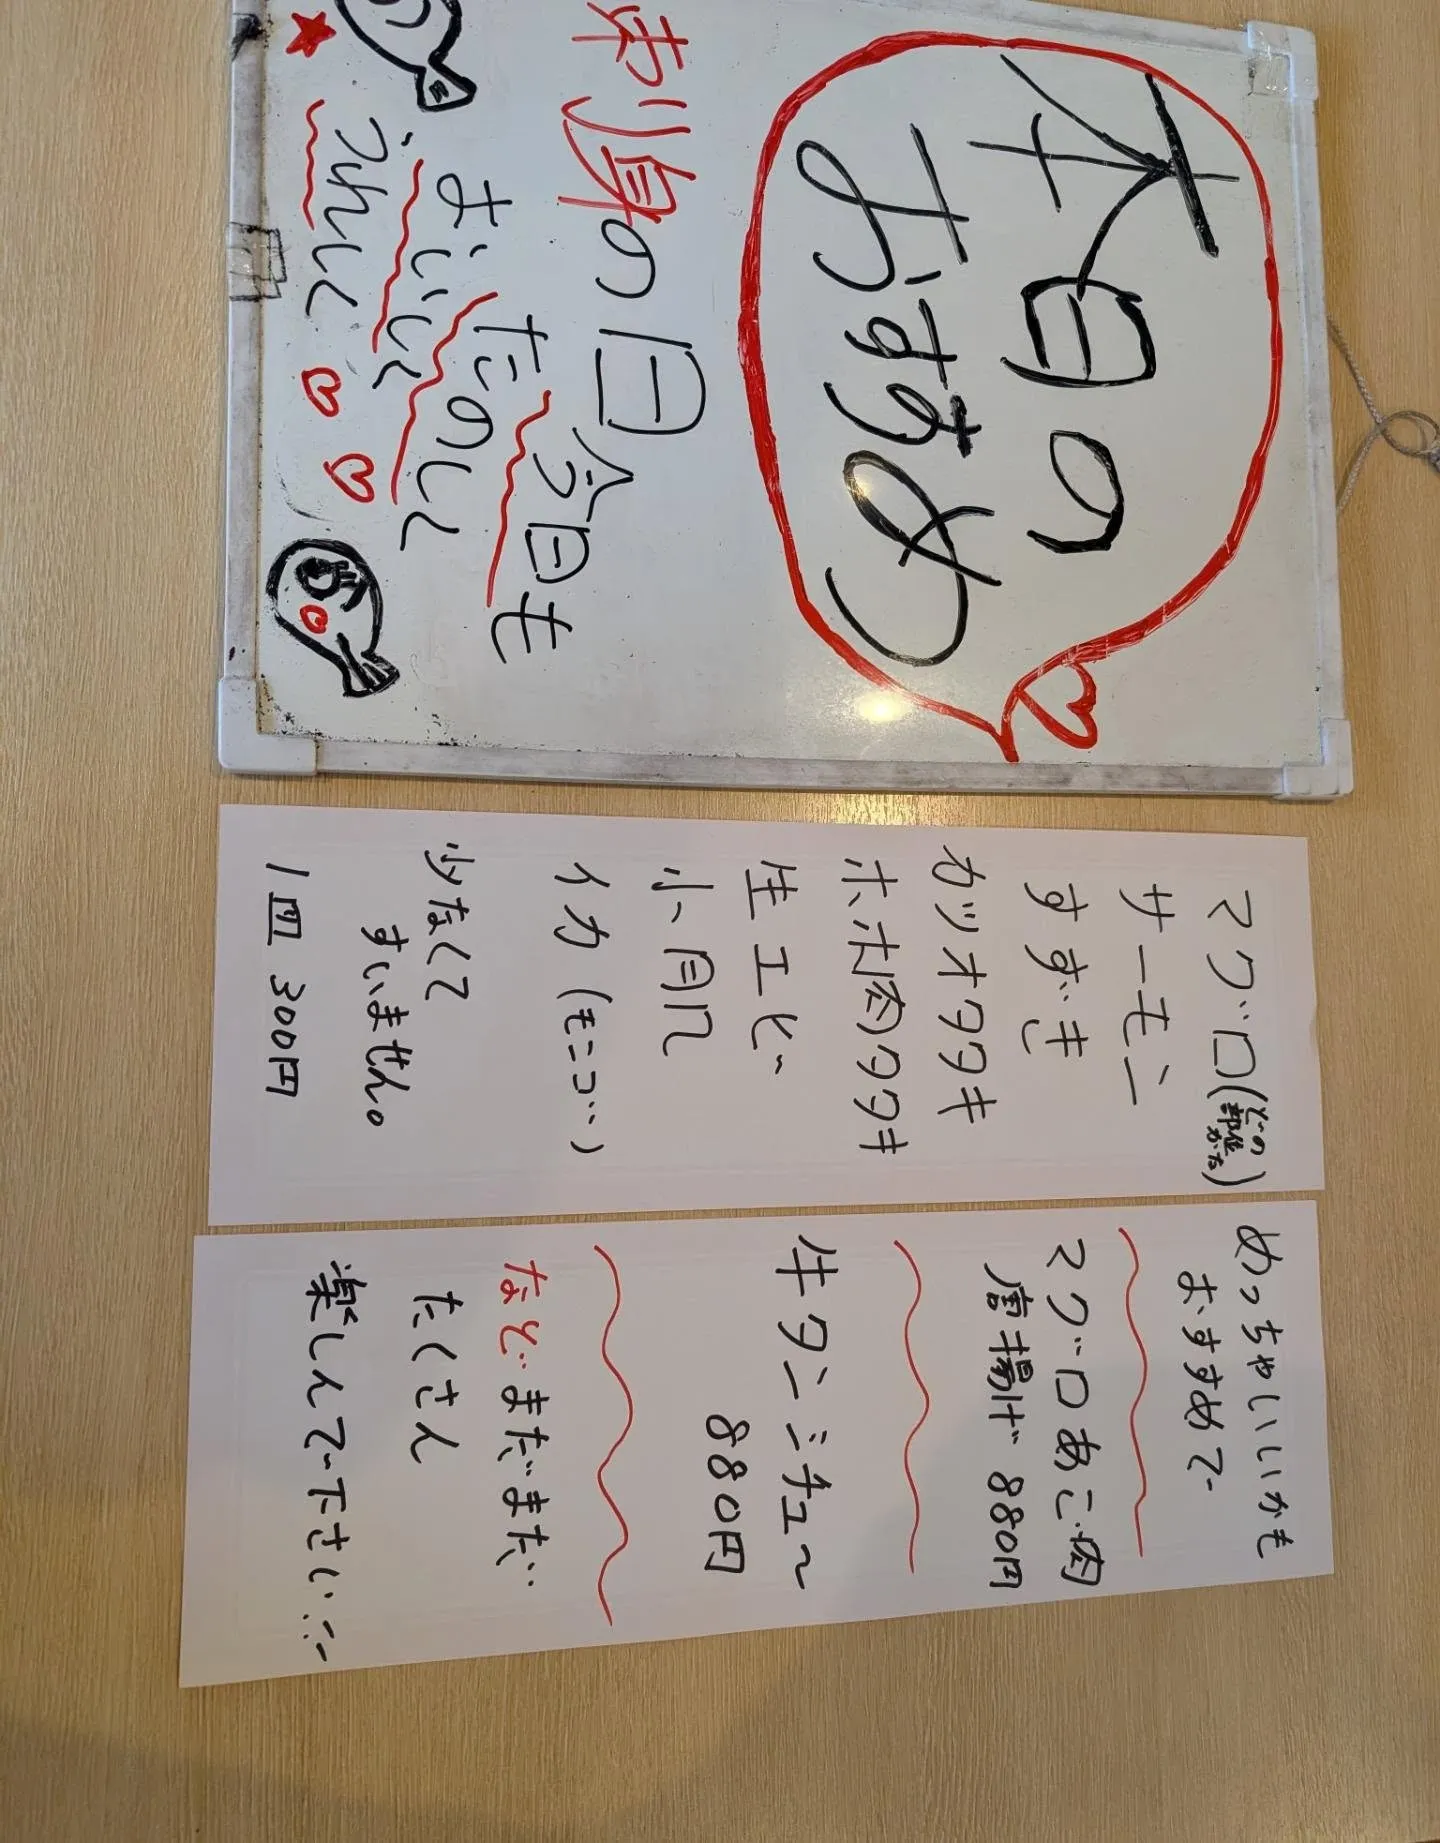 本日の
おすすめ
刺身の日
今日も
たのしく
おいしく
うれしく
マグロ(どの部位かな)
サーモン
すずき
カツオタタキ
ホホ肉タタキ
生エビ
小肌
イカ(モンゴ‥)
少なくて
すいません。
1皿 300円
めっちゃいいかも
おすすめで
マグロあご肉
唐揚げ 880円
牛タンシチュ～
880円
などまだまだ‥
たくさん
楽しんで下さい